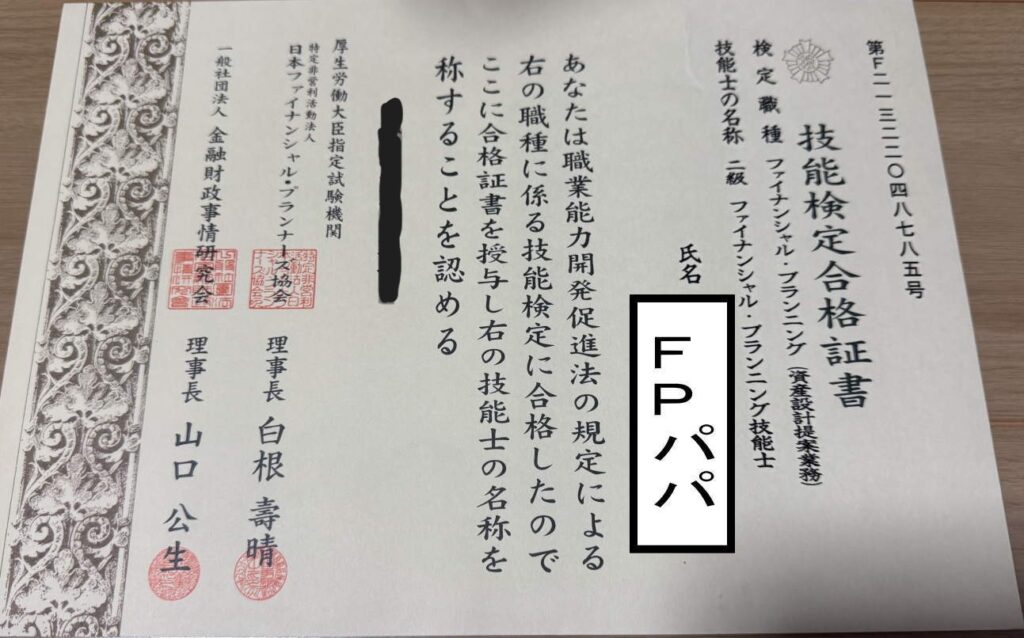 第F二一三二二〇四八七八五号
技能検定合格証書
検定職種 ファイナンシャル・プランニング（資産設計提案業務）
技能士の名称 二級 ファイナンシャル・プランニング技能士
氏名
FPパパ
あなたは職業能力開発促進法の規定による
右の職種に係る技能検定に合格したので
ここに合格証書を授与し右の技能士の名称を
称することを認める
厚生労働大臣指定試験機関
特定非営利活動法人
日本ファイナンシャル・プランナーズ協会 理事長 白根 壽晴
一般社団法人 金融財政事情研究会 理事長 山口 公生